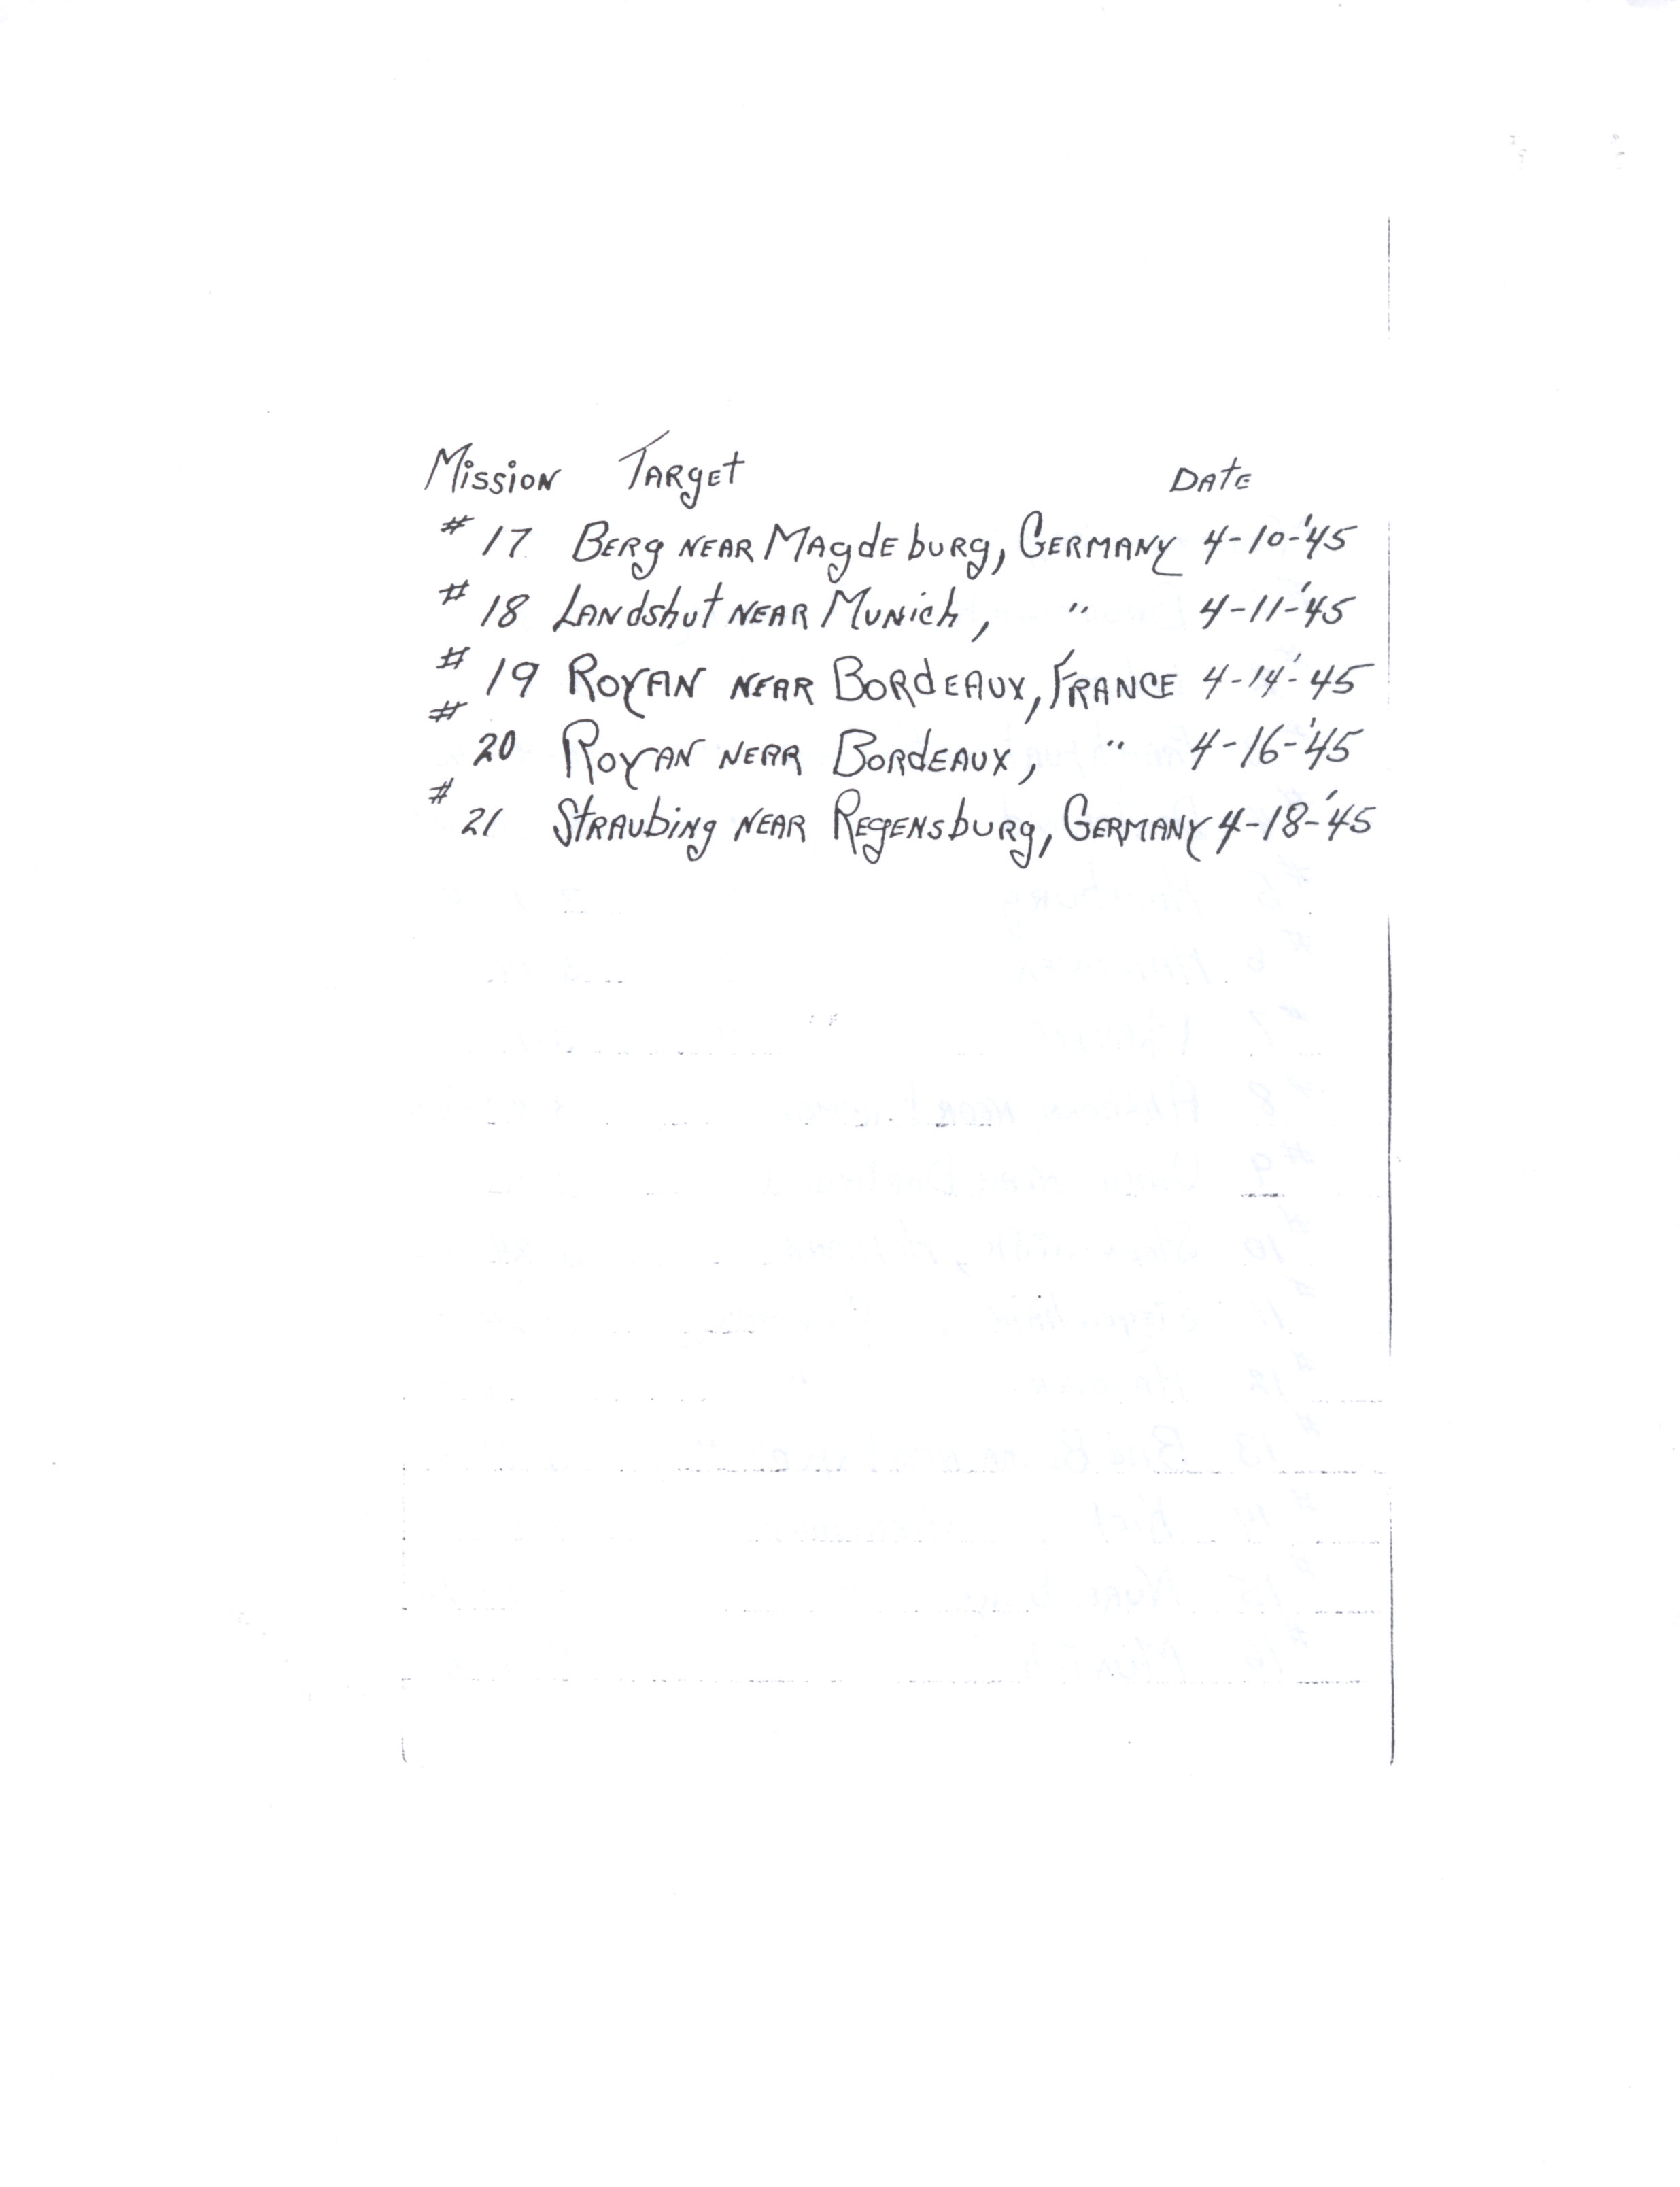 Mission Target Date
# 17 Berg near Magdeburg, Germany 4-10-'45
# 18 Landshut near Munich, " 4-11-'45
# 19 Royan near Bordeaux, France 4-14'-45
# 20 Royan near Bordeaux, " 4-16-'45
# 21 Straubing near Regensburg, Germany 4-18-'45